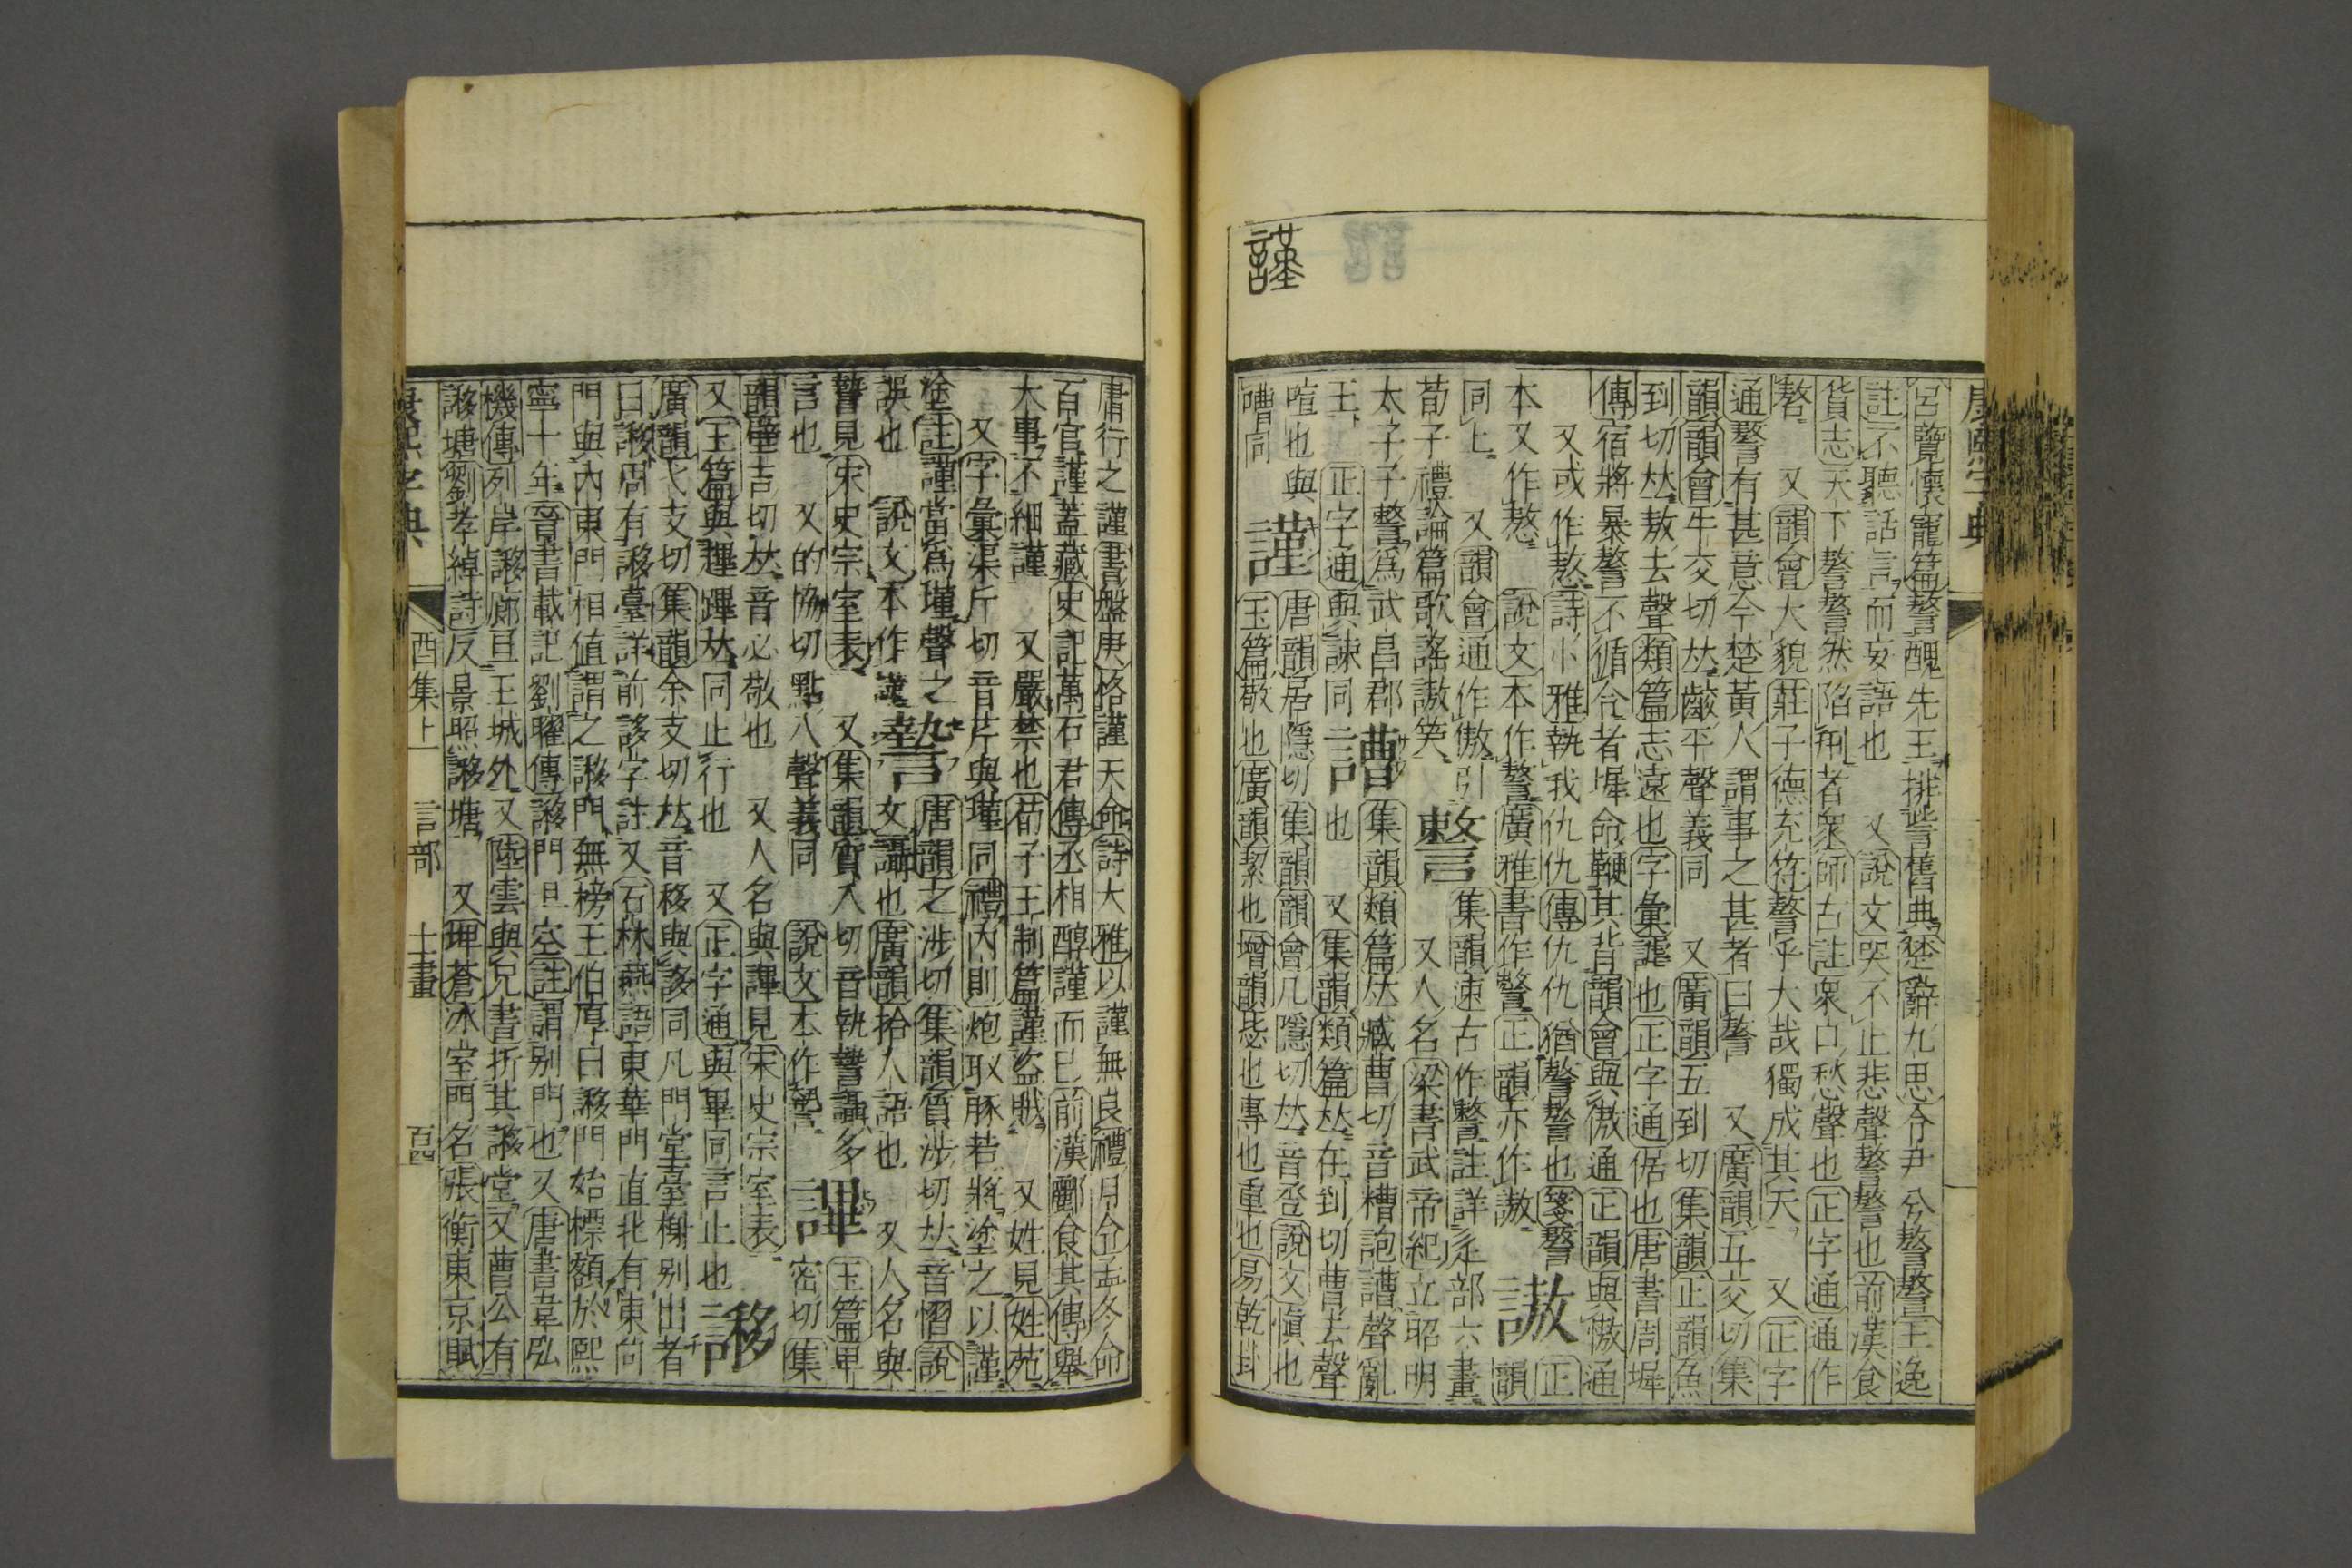 謹
康熙字典
呂覽懷寵篇謷醜先王排訾舊典楚辭九思令尹兮謷謷王逸
註不聽話言而妄語也 又說文哭不止悲聲謷謷也前漢食
貨志天下謷謷然陷刑者衆師古註衆口愁聲也正字通通作
嗸 又韻會大貌莊子德充符謷乎大哉獨成其天 又正字
通謷有甚意今楚黃人謂事之甚者曰謷 又廣韻五交切集
韻韻會牛交切𠀤齩平聲義同 又廣韻五到切集韻正韻魚
到切𠀤敖去聲類篇志遠也字彙譀也正字通倨也唐書周墀
傳宿將暴謷不循令者墀命鞭其背韻會與傲通正韻與憿通
又或作熬詩小雅執我仇仇傳仇仇猶謷謷也箋謷 正
本又作熬 說文本作謷廣雅書作謷正韻亦作謸 謸 韻
同上 又韻會通作傲引 集韻速古作謷註詳辵部六畫
荀子禮論篇歌謠謸笑 謷 又人名梁書武帝紀立昭明
太子子謷爲武昌郡 譛 集韻類篇𠀤臧曹切音糟訑譛聲亂
王 正字通與諫同 也 又集韻類篇𠀤在到切曹去聲
喧也與 謹 唐韻居隱切集韻韻會几隱切𠀤音巹說文愼也
嘈同 玉篇敬也廣韻絜也增韻毖也專也重也易乾卦
庸行之謹書盤庚恪謹天命詩大雅以謹無良禮月令孟冬命
百官謹蓋藏史記萬石君傳丞相醇謹而已前漢酈食其傳舉
大事不細謹 又嚴禁也荀子王制篇謹盜賊 又姓見姓苑
又字彙渠斤切音芹與墐同禮內則炮取豚若將塗之以謹
塗註謹當爲墐聲之 謺 唐韻之涉切集韻質涉切𠀤音慴說
誤也 說文本作𧫷 文讘也廣韻拾人語也 又人名與
謺見宋史宗室表 又集韻質入切音執謺讘多 玉篇畀
言也 又的協切點入聲義同 說文本作謺 譁 密切集
韻壁吉切𠀤音必敬也 又人名與譁見宋史宗室表
又玉篇與趩蹕𠀤同止行也 又正字通與畢同言止也 謻
廣韻弋支切集韻余支切𠀤音移與誃同凡門堂臺榭別出者
曰謻周有謻臺詳前誃字註又石林燕語東華門直北有東向
門與內東門相値謂之謻門無榜王伯厚曰謻門始標額於熙
寧十年晉書載記劉曜傳謻門旦空註謂別門也又唐書韋弘
機傳列岸謻廊亘王城外又陸雲與兄書折其謻堂又曹公有
謻塘劉孝綽詩反景照謻塘 又埤蒼冰室門名張衡東京賦
康熙字典 酉集上 言部 十一畫 百四